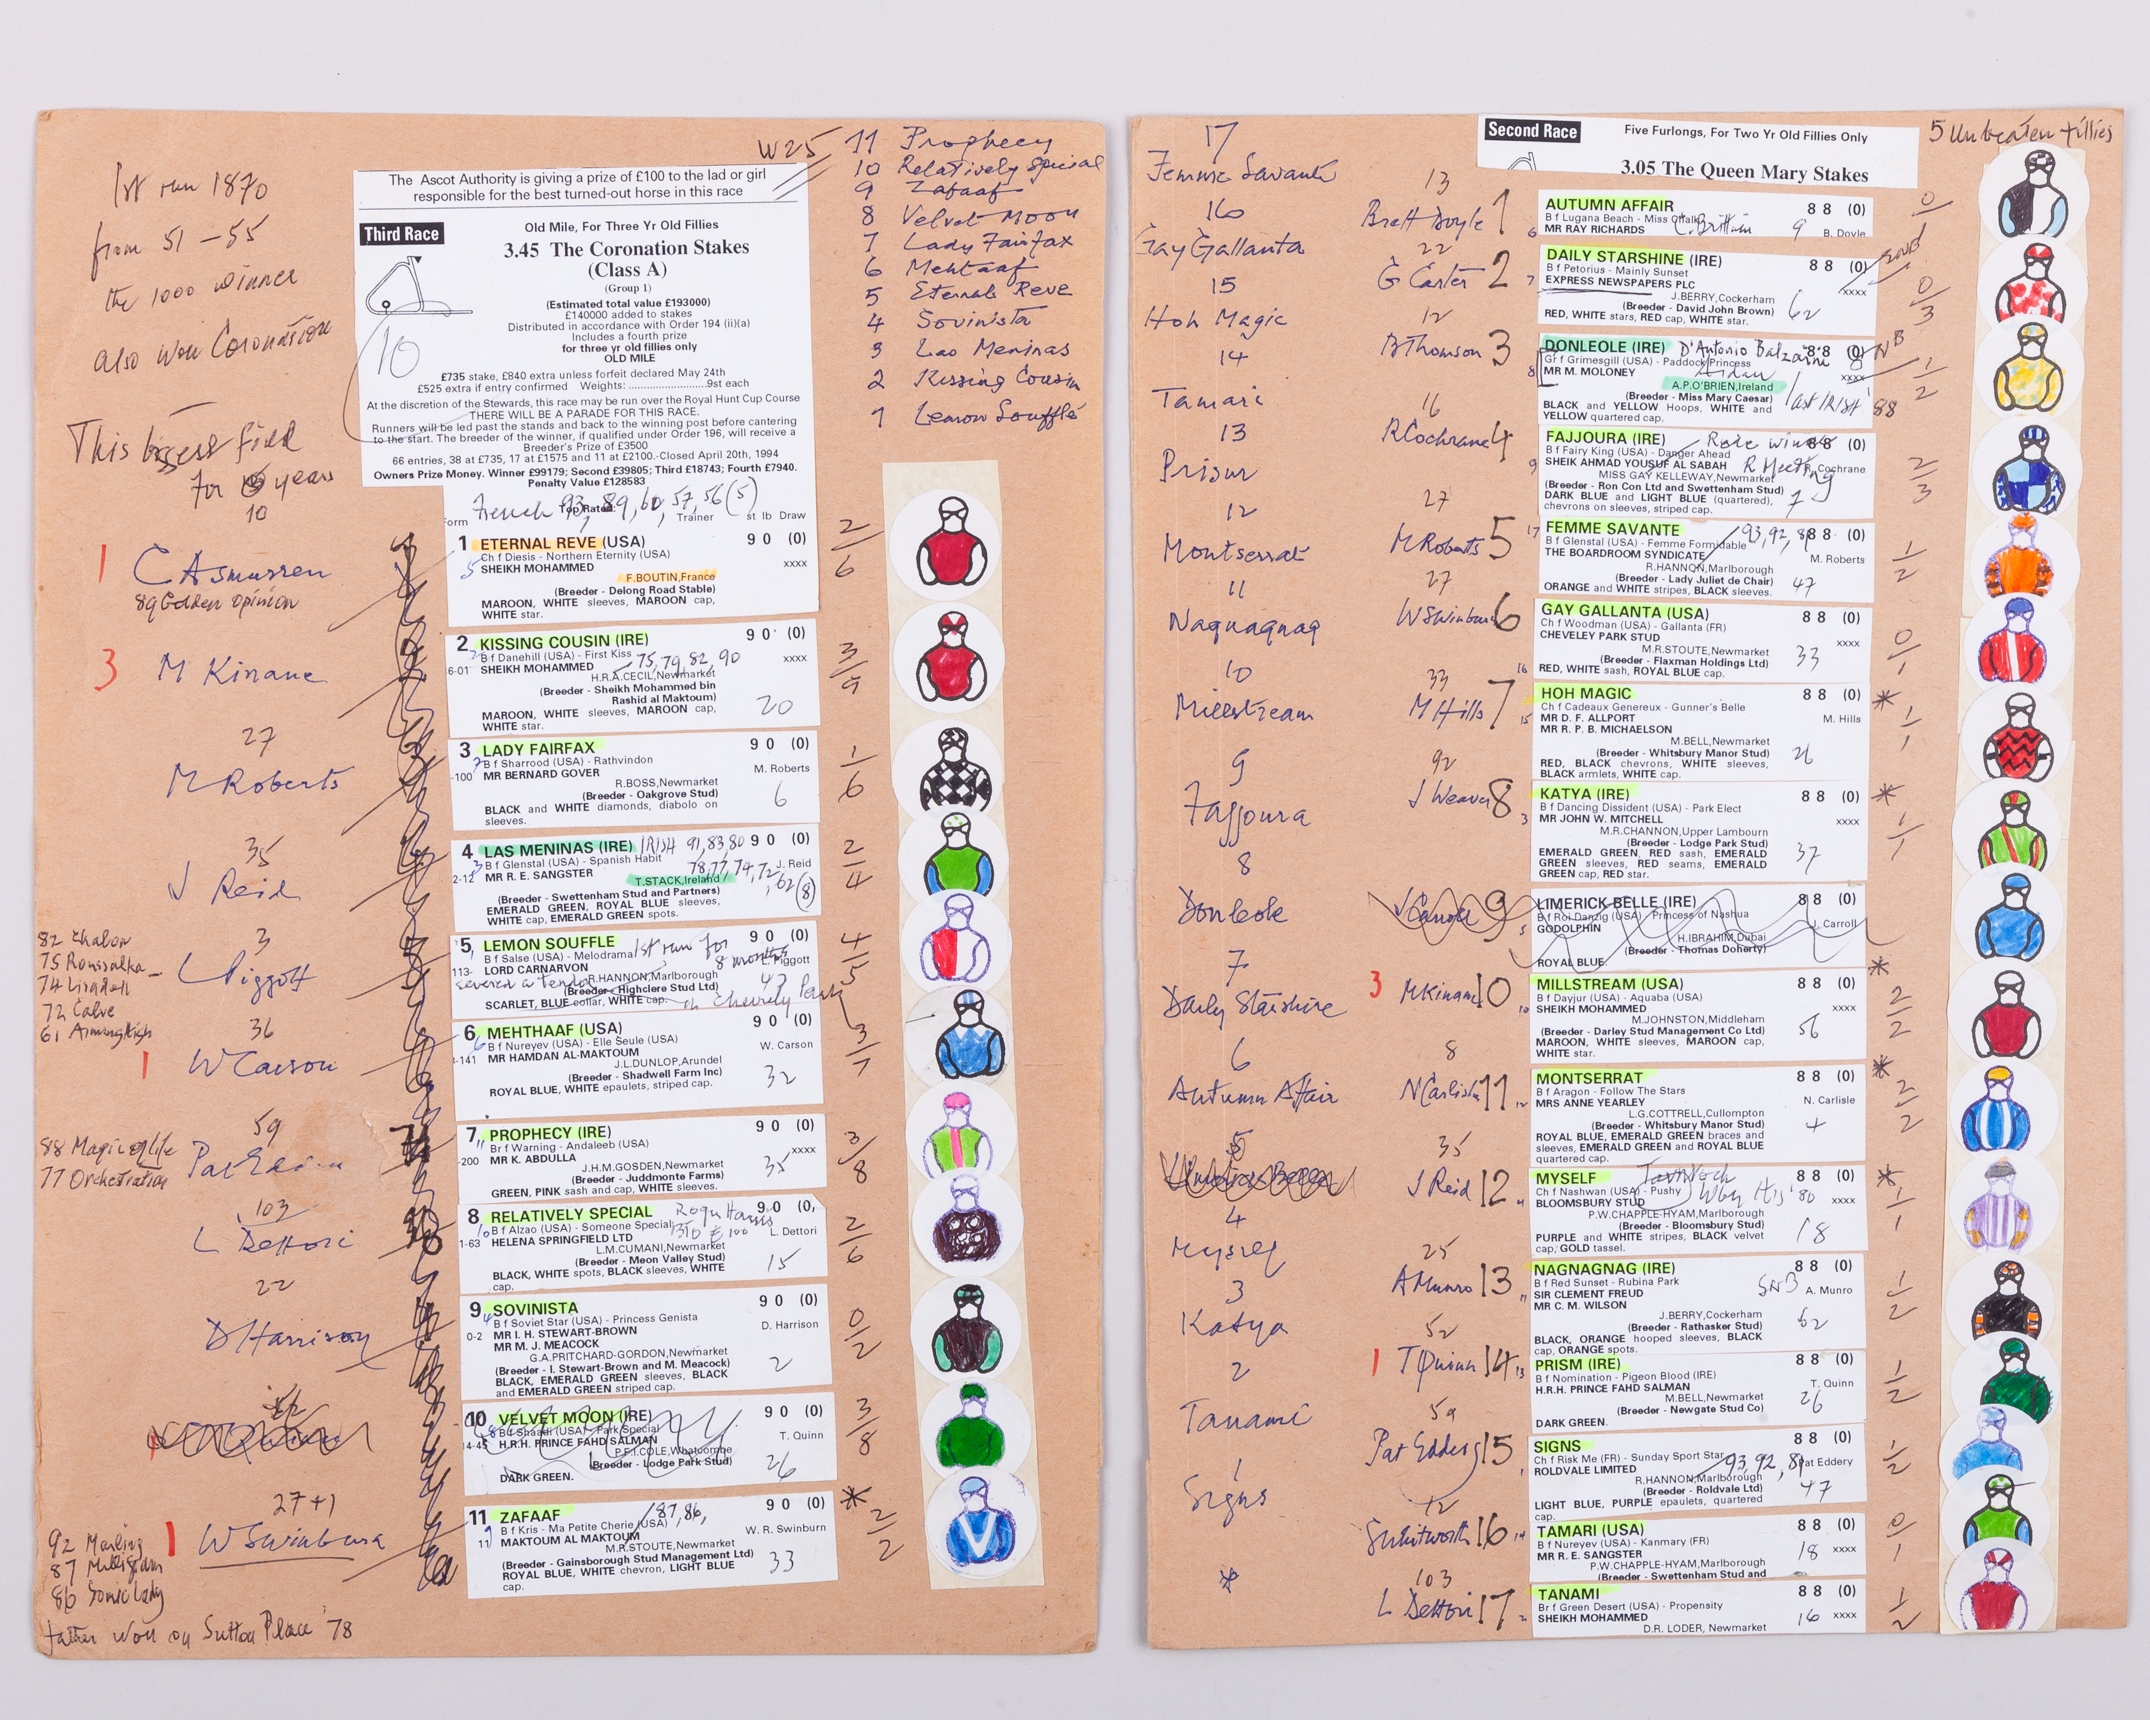 1st run 1870
from 51 - 55
the 1000 winner
also won Coronation
This biggest field
for years
10
W25
The Ascot Authority is giving a prize of £100 to the lad or girl
responsible for the best turned-out horse in this race
Third Race
Old Mile, For Three Yr Old Fillies
3.45 The Coronation Stakes
(Class A)
(Group 1)
(Estimated total value £193000)
£140000 added to stakes
Distributed in accordance with Order 194 (ii)(a)
Includes a fourth prize
for three yr old fillies only
OLD MILE
10
£735 stake, £840 extra unless forfeit declared May 24th
£525 extra if entry confirmed Weights: ..............................9st each
At the discretion of the Stewards, this race may be run over the Royal Hunt Cup Course
THERE WILL BE A PARADE FOR THIS RACE.
Runners will be led past the stands and back to the winning post before cantering
to the start. The breeder of the winner, if qualified under Order 196, will receive a
Breeder's Prize of £3500
66 entries, 38 at £735, 17 at £1575 and 11 at £2100.-Closed April 20th, 1994
Owners Prize Money. Winner £99179; Second £39805; Third £18743; Fourth £7940.
Penalty Value £128583
French 93, 89, 60, 57, 56 (5)
Top Rated:
Form Trainer st lb Draw
11 Prophecy
10 Relatively Special
9 Zafaaf
8 Velvet Moon
7 Lady Fairfax
6 Mehtaaf
5 Eternal Reve
4 Sovinista
3 Las Meninas
2 Kissing Cousin
1 Lemon Soufflé
1 C Asmussen
89 Golden Opinion
1 ETERNAL REVE (USA) 9 0 (0)
Ch f Diesis - Northern Eternity (USA)
5 SHEIKH MOHAMMED xxxx
F.BOUTIN,France
(Breeder - Delong Road Stable)
MAROON, WHITE sleeves, MAROON cap,
WHITE star.
2/6
3 M Kinane
2 KISSING COUSIN (IRE) 9 0 (0)
B f Danehill (USA) - First Kiss
6-01 SHEIKH MOHAMMED 75, 79, 82, 90 xxxx
H.R.A.CECIL,Newmarket
(Breeder - Sheikh Mohammed bin
Rashid al Maktoum)
20
MAROON, WHITE sleeves, MAROON cap,
WHITE star.
27
M Roberts
3 LADY FAIRFAX 9 0 (0)
7 B f Sharrood (USA) - Rathvindon
-100 MR BERNARD GOVER M. Roberts
R.BOSS,Newmarket
(Breeder - Oakgrove Stud)
6
BLACK and WHITE diamonds, diabolo on
sleeves.
1/6
35
J Reid
4 LAS MENINAS (IRE) IRISH 91, 83, 80 9 0 (0)
3 B f Glenstal (USA) - Spanish Habit 78, 77, 74, 72, J. Reid
2-12 MR R. E. SANGSTER 62 (8)
T.STACK,Ireland
(Breeder - Swettenham Stud and Partners)
EMERALD GREEN, ROYAL BLUE sleeves,
WHITE cap, EMERALD GREEN spots.
2/4
82 Chalon
75 Roussalka
74 Lisadell
72 Calve
61 Aiming High
3
L Piggott
5 LEMON SOUFFLE 1st run for 9 0 (0)
B f Salse (USA) - Melodrama 8 months L. Piggott
113- LORD CARNARVON
R.HANNON,Marlborough
47
severed a tendon
(Breeder - Highclere Stud Ltd)
SCARLET, BLUE collar, WHITE cap. in Cheveley Park
4/5
36
1 W Carson
6 MEHTHAAF (USA) 9 0 (0)
6 B f Nureyev (USA) - Elle Seule (USA)
1-141 MR HAMDAN AL-MAKTOUM W. Carson
J.L.DUNLOP,Arundel
(Breeder - Shadwell Farm Inc)
32
ROYAL BLUE, WHITE epaulets, striped cap.
59
88 Magic of life
77 Orchestration
Pat Eddery
7 PROPHECY (IRE) 9 0 (0)
11 Br f Warning - Andaleeb (USA)
-200 MR K. ABDULLA xxxx
J.H.M.GOSDEN,Newmarket
35
(Breeder - Juddmonte Farms)
GREEN, PINK sash and cap, WHITE sleeves.
3/8
103
L Dettori
8 RELATIVELY SPECIAL Roger Harris 9 0 (0)
10 B f Alzao (USA) - Someone Special
1-63 HELENA SPRINGFIELD LTD L. Dettori
L.M.CUMANI,Newmarket
(Breeder - Meon Valley Stud)
15
BLACK, WHITE spots, BLACK sleeves, WHITE
cap.
2/6
22
D Harrison
9 SOVINISTA 9 0 (0)
4 B f Soviet Star (USA) - Princess Genista
0-2 MR I. H. STEWART-BROWN D. Harrison
MR M. J. MEACOCK
G.A.PRITCHARD-GORDON,Newmarket
(Breeder - I. Stewart-Brown and M. Meacock)
2
BLACK, EMERALD GREEN sleeves, BLACK
and EMERALD GREEN striped cap.
0/2
10 VELVET MOON (IRE) 9 0 (0)
8 B f Shaadi (USA) - Park Special
14-45 H.R.H. PRINCE FAHD SALMAN T. Quinn
P.F.I.COLE,Whatcombe
(Breeder - Lodge Park Stud)
26
DARK GREEN.
3/8
27+1
92 Marling
87 Milligram
86 Sonic Lady
1 W Swinburn
11 ZAFAAF 87, 86, 9 0 (0)
9 B f Kris - Ma Petite Cherie (USA)
11 MAKTOUM AL MAKTOUM W. R. Swinburn
M.R.STOUTE,Newmarket
(Breeder - Gainsborough Stud Management Ltd)
33
ROYAL BLUE, WHITE chevron, LIGHT BLUE
cap.
* 2/2
father won on Sutton Place '78
17
Femme Savante
16
Gay Gallanta
15
Hoh Magic
14
Tamari
13
Prism
12
Montserrat
11
Nagnagnag
10
Millstream
9
Fajjoura
8
Donleole
7
Daily Starshine
6
Autumn Affair
5
4
Myself
3
Katya
2
Tanami
1
Signs
*
Second Race
Five Furlongs, For Two Yr Old Fillies Only
3.05 The Queen Mary Stakes
5 Unbeaten fillies
13
Brett Doyle 1
AUTUMN AFFAIR 8 8 (0)
B f Lugana Beach - Miss Chalk
6 MR RAY RICHARDS C. Brittain 9 B. Doyle
22
G Carter 2
DAILY STARSHINE (IRE) 8 8 (0)
B f Petorius - Mainly Sunset
7 EXPRESS NEWSPAPERS PLC xxxx
J.BERRY,Cockerham
(Breeder - David John Brown) 62
RED, WHITE stars, RED cap, WHITE star.
0/3
12
B Thomson 3
DONLEOLE (IRE) D'Antonio 8 8 (0) NB
Gr f Grimesgill (USA) - Paddock Princess
8 MR M. MOLONEY Aidan xxxx
A.P.O'BRIEN,Ireland
(Breeder - Miss Mary Caesar) last IRISH 88
BLACK and YELLOW Hoops, WHITE and
YELLOW quartered cap.
1/2
16
R Cochrane 4
FAJJOURA (IRE) 8 8 (0)
B f Fairy King (USA) - Danger Ahead
9 SHEIK AHMAD YOUSUF AL SABAH R Meeting R. Cochrane
MISS GAY KELLEWAY,Newmarket
(Breeder - Ron Con Ltd and Swettenham Stud) 7
DARK BLUE and LIGHT BLUE (quartered),
chevrons on sleeves, striped cap.
2/3
27
M Roberts 5
17 FEMME SAVANTE 93, 92, 8 8 (0)
B f Glenstal (USA) - Femme Formidable
THE BOARDROOM SYNDICATE M. Roberts
R.HANNON,Marlborough
(Breeder - Lady Juliet de Chair) 47
ORANGE and WHITE stripes, BLACK sleeves.
1/2
27
W Swinburn 6
GAY GALLANTA (USA) 8 8 (0)
Ch f Woodman (USA) - Gallanta (FR)
CHEVELEY PARK STUD xxxx
M.R.STOUTE,Newmarket
(Breeder - Flaxman Holdings Ltd) 33
16 RED, WHITE sash, ROYAL BLUE cap.
0/1
33
M Hills 7
HOH MAGIC 8 8 (0) *
Ch f Cadeaux Genereux - Gunner's Belle
15 MR D. F. ALLPORT M. Hills
MR R. P. B. MICHAELSON
M.BELL,Newmarket
(Breeder - Whitsbury Manor Stud) 26
RED, BLACK chevrons, WHITE sleeves,
BLACK armlets, WHITE cap.
1/1
92
J Weaver 8
KATYA (IRE) 8 8 (0) *
B f Dancing Dissident (USA) - Park Elect
3 MR JOHN W. MITCHELL xxxx
M.R.CHANNON,Upper Lambourn
(Breeder - Lodge Park Stud) 37
EMERALD GREEN, RED sash, EMERALD
GREEN sleeves, RED seams, EMERALD
GREEN cap, RED star.
1/1
J Carroll 9
LIMERICK BELLE (IRE) 8 8 (0)
B f Roi Danzig (USA) - Princess of Nashua
5 GODOLPHIN J. Carroll
H.IBRAHIM,Dubai
(Breeder - Thomas Doherty)
ROYAL BLUE.
3 M Kinane 10
MILLSTREAM (USA) 8 8 (0) *
B f Dayjur (USA) - Aquaba (USA)
10 SHEIKH MOHAMMED xxxx
M.JOHNSTON,Middleham
(Breeder - Darley Stud Management Co Ltd) 56
MAROON, WHITE sleeves, MAROON cap,
WHITE star.
2/2
8
N Carlisle 11
MONTSERRAT 8 8 (0) *
B f Aragon - Follow The Stars
12 MRS ANNE YEARLEY N. Carlisle
L.G.COTTRELL,Cullompton
(Breeder - Whitsbury Manor Stud) 4
ROYAL BLUE, EMERALD GREEN braces and
sleeves, EMERALD GREEN and ROYAL BLUE
quartered cap.
2/2
35
J Reid 12
MYSELF 8 8 (0) *
Ch f Nashwan (USA) - Pushy
BLOOMSBURY STUD won this '80 xxxx
P.W.CHAPPLE-HYAM,Marlborough
(Breeder - Bloomsbury Stud) 18
PURPLE and WHITE stripes, BLACK velvet
cap, GOLD tassel.
1/1
25
A Munro 13
NAGNAGNAG (IRE) 8 8 (0)
B f Red Sunset - Rubina Park
11 SIR CLEMENT FREUD A. Munro
MR C. M. WILSON
J.BERRY,Cockerham
(Breeder - Rathasker Stud) 62
BLACK, ORANGE hooped sleeves, BLACK
cap, ORANGE spots.
1/2
52
1 T Quinn 14
PRISM (IRE) 8 8 (0)
B f Nomination - Pigeon Blood (IRE)
13 H.R.H. PRINCE FAHD SALMAN T. Quinn
M.BELL,Newmarket
(Breeder - Newgate Stud Co) 26
DARK GREEN.
1/2
59
Pat Eddery 15
SIGNS 8 8 (0)
Ch f Risk Me (FR) - Sunday Sport Star
1 ROLDVALE LIMITED 93, 92, Pat Eddery
R.HANNON,Marlborough
(Breeder - Roldvale Ltd) 47
LIGHT BLUE, PURPLE epaulets, quartered
cap.
1/2
12
S Whitworth 16
TAMARI (USA) 8 8 (0)
B f Nureyev (USA) - Kanmary (FR)
14 MR R. E. SANGSTER 18 xxxx
P.W.CHAPPLE-HYAM,Marlborough
(Breeder - Swettenham Stud and
0/1
103
L Dettori 17
TANAMI 8 8 (0)
Br f Green Desert (USA) - Propensity
2 SHEIKH MOHAMMED 16 xxxx
D.R. LODER, Newmarket
1/2